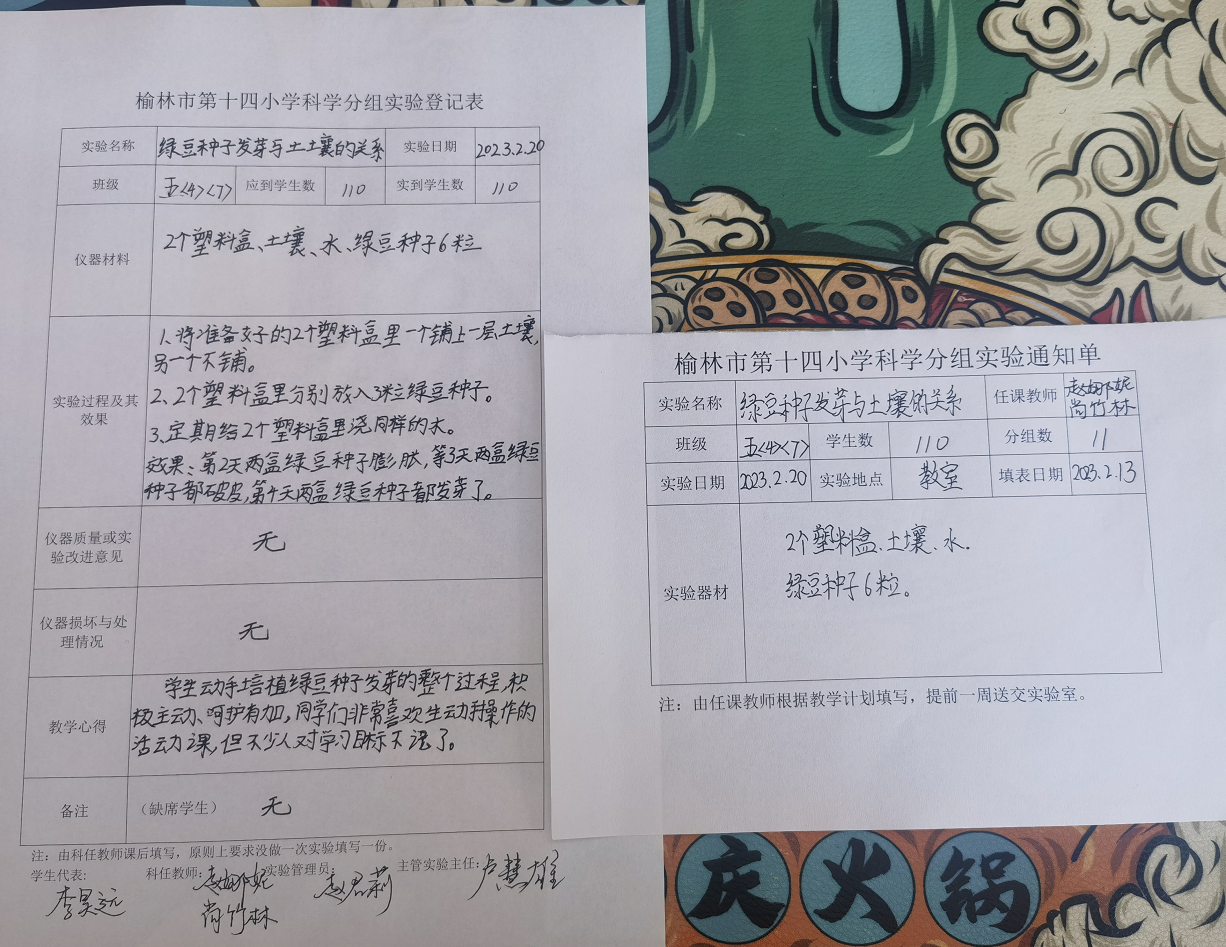 榆林市第十四小学科学分组实验登记表
实验名称 绿豆种子发芽与土土壤的关系 实验日期 2023.2.20
班级 五<4><7> 应到学生数 110 实到学生数 110
仪器材料 2个塑料盒、土壤、水、绿豆种子6粒
实验过程及其
效果
1、将准备好的2个塑料盒里一个铺上一层土壤,
另一个不铺。
2、2个塑料盒里分别放入3粒绿豆种子。
3、定期给2个塑料盒里浇同样的水。
效果:第2天两盒绿豆种子膨胀,等3天两盒绿豆
种子都破皮,第4天两盒绿豆种子都发芽了。
仪器质量或实
验改进意见
无
仪器损坏与处
理情况
无
教学心得
学生动手培植绿豆种子发芽的整个过程,积
极主动、呵护有加,同学们非常喜欢生动手操作的
活动课,但不少人对学习目标不
了。
备注 (缺席学生) 无
注:由科任教师课后填写,原则上要求没做一次实验填写一份。
学生代表: 科任教师: 实验管理员: 主管实验主任:
李昊远 赵娜妮 赵君莉 卢慧雄
尚竹林
榆林市第十四小学科学分组实验通知单
实验名称 绿豆种子发芽与土壤的关系 任课教师 赵娜妮
尚竹林
班级 五<4><7> 学生数 110 分组数 11
实验日期 2023.2.20 实验地点 教室 填表日期 2023.2.13
实验器材
2个塑料盒、土壤、水.
绿豆种子6粒。
注:由任课教师根据教学计划填写,提前一周送交实验室。
庆火锅